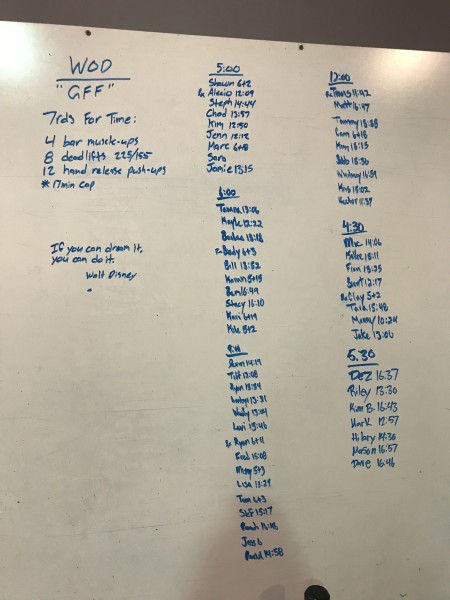 WOD
"GFF"
7rds For Time:
4 bar muscle-ups
8 deadlifts 225/155
12 hand release push-ups
* 17min cap
If you can dream it,
you can do it.
Walt Disney
5:00
Shawn 6+2
Rx Alecio 12:09
Steph 14:44
Chad 13:57
Kim 12:50
Jenn 12:12
Marc 6+8
Sara
Jamie 13:15
6:00
Tamra 13:06
Kayle 12:22
13:18
Rx Brady 6+3
Bill 13:52
Karen 5+15
Ben 16:49
Stacy 16:10
Kari 6+19
Kyle 5+2
14:19
Tiff 12:08
Ryan
13:31
Wendy 13:04
Lori 13:46
Ryan 6+11
Fred 15:08
Missy 5+3
Lisa 13:29
Tom 6+3
Stef 15:17
Jess 6
Brad 14:58
12:00
Rx Travis 11:42
Matt 16:47
Tammy
Cam 6+18
Kim 13:15
15:36
Whitney 16:59
Kris 13:02
Hector 11:39
4:30
14:06
13:11
Finn 13:25
Bart 12:17
Rx Clay 5+2
Tara 15:48
Manny 10:24
Jake 13:06
5:30
DEZ 16:37
Riley 13:30
Kim B. 16:43
Mark 12:57
Hilary 14:30
Mason 16:57
Dave 16:46